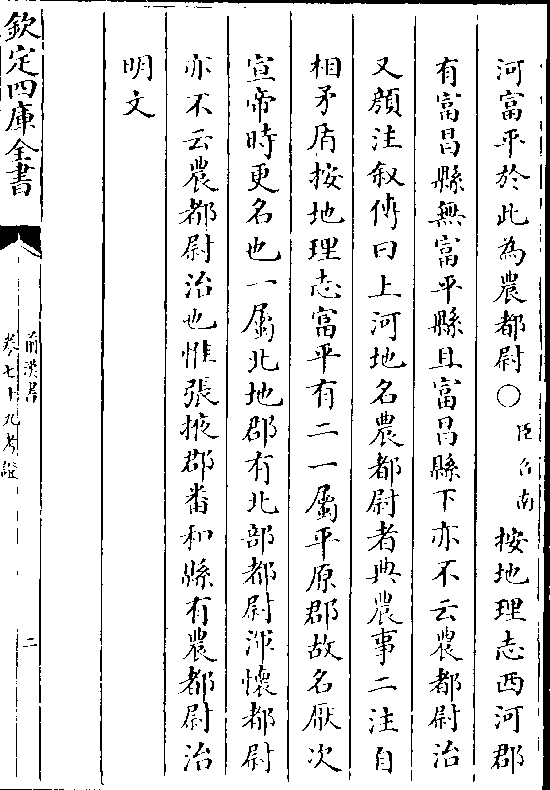 河富平於此為農都尉〇臣召南按地理志西河郡
有富昌縣無富平縣且富昌縣下亦不云農都尉治
又顔注叙傳曰上河地名農都尉者典農事二注自
相矛盾按地理志富平有二一屬平原郡故名厭次
宣帝時更名也一屬北地郡有北部都尉渾懷都尉
亦不云農都尉治也惟張掖郡番和縣有農都尉治
明文
欽定四庫全書
前漢書
卷七十九考證
二